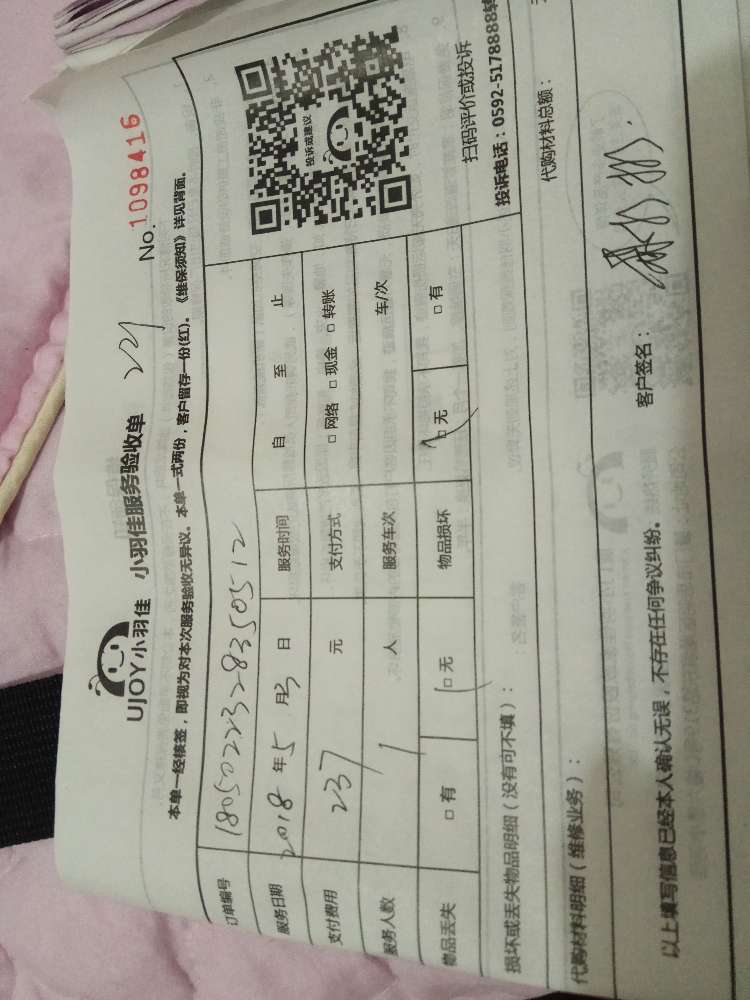 UJOY小羽佳 小羽佳服务验收单 221 No.1098416
本单一经核签，即视为对本次服务验收无异议。本单一式两份，客户留存一份(红)。《维保须知》详见背面。
订单编号 180502232835 0512
服务日期 2018年5月3日 服务时间 自 至 止
支付费用 237 元 支付方式 □网络 □现金 □转账
服务人数 1 人 服务车次 车/次
物品丢失 □有 □无 物品损坏 □无 □有
投诉或建议
扫码评价或投诉
投诉电话：0592-5178888转
损坏或丢失物品明细（没有可不填）：
代购材料明细（维修业务）： 代购材料总额：
以上填写信息已经本人确认无误，不存在任何争议纠纷。 客户签名：